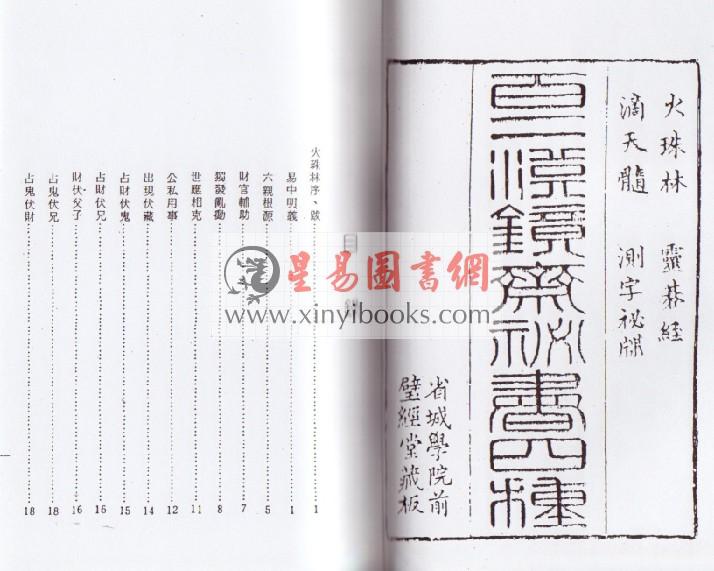 火珠林 靈棊經
滴天髓 測字祕牒
百二漢鏡齋祕書四種
省城學院前
璧經堂藏板
目錄
火珠林序、跋……1
易中明義……1
六親根源……5
財官輔助……7
獨發亂動……8
世應相克……11
公私用事……12
出現伏藏……14
占財伏鬼……15
占財伏兄……16
財伏父子……16
占鬼伏兄……18
占鬼伏財……18
星易圖書網
www.xinyibooks.com